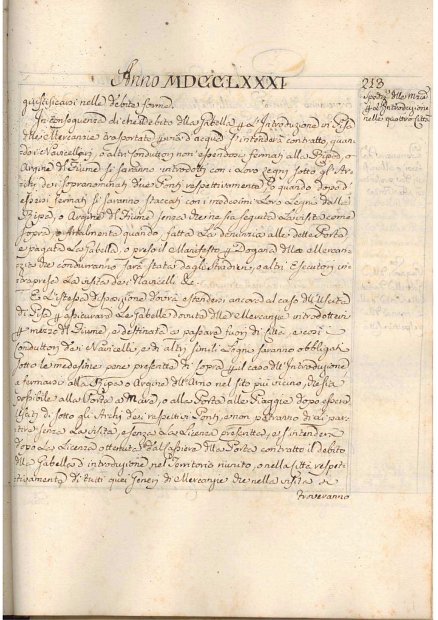 Anno MDCCLXXXI
213
giustificarsi nelle debite forme.
In conseguenza di che il debito della Gabella per l'Introduzione in Pisa
delle Mercanzie trasportate per via d'acqua s'intenderà contratto quan-
do i Navicellai, o altri Conduttori non essendosi fermati alla Ripa, o
Argine di Fiume si saranno introdotti con i Loro Legni sotto gli Ar-
chi dei soprannominati due Ponti respettivamente, o quando dopo d'
essersi fermati si saranno staccati con i medesimi Loro Legni dalla
Ripa, o Argine di Fiume senza che ne sia seguita la visita come
sopra, o finalmente quando fatta la denunzia alle dette Porte
e pagata la Gabella, o preso il Manifesto per Dogana delle Mercan-
zie che condurranno sarà stata dagli Stradieri, o altri Esecutori in-
trapresa la visita dei Navicelli &c.
E l'istessa disposizione dovrà estendersi ancora al caso dell'Uscita
di Pisa per assicurare le Gabelle dovute dalle Mercanzie introdottevi
per mezzo del Fiume, e destinate a passare fuori di Città, e così i
Conduttori dei Navicelli, e di altri simili Legni saranno obbligati
sotto le medesime pene prescritte di sopra per il caso dell'Introduzione
a fermarsi alla Ripa o Argine dell'Arno nel sito più vicino, che sia
possibile alla Porta a Mare, o alla Porta alle Piagge dopo essere
usciti di sotto gli Archi dei respettivi Ponti, e non potranno di lì par-
tire senza la visita, e senza la Licenza prescritta, e s'intenderà
dopo la Licenza ottenuta dal Cassiere della Porta contratto il debito
della Gabella d'introduzione nel Territorio riunito, o nella Città respet-
tivamente di tutti quei Generi di Mercanzie che nella visita si
troveranno